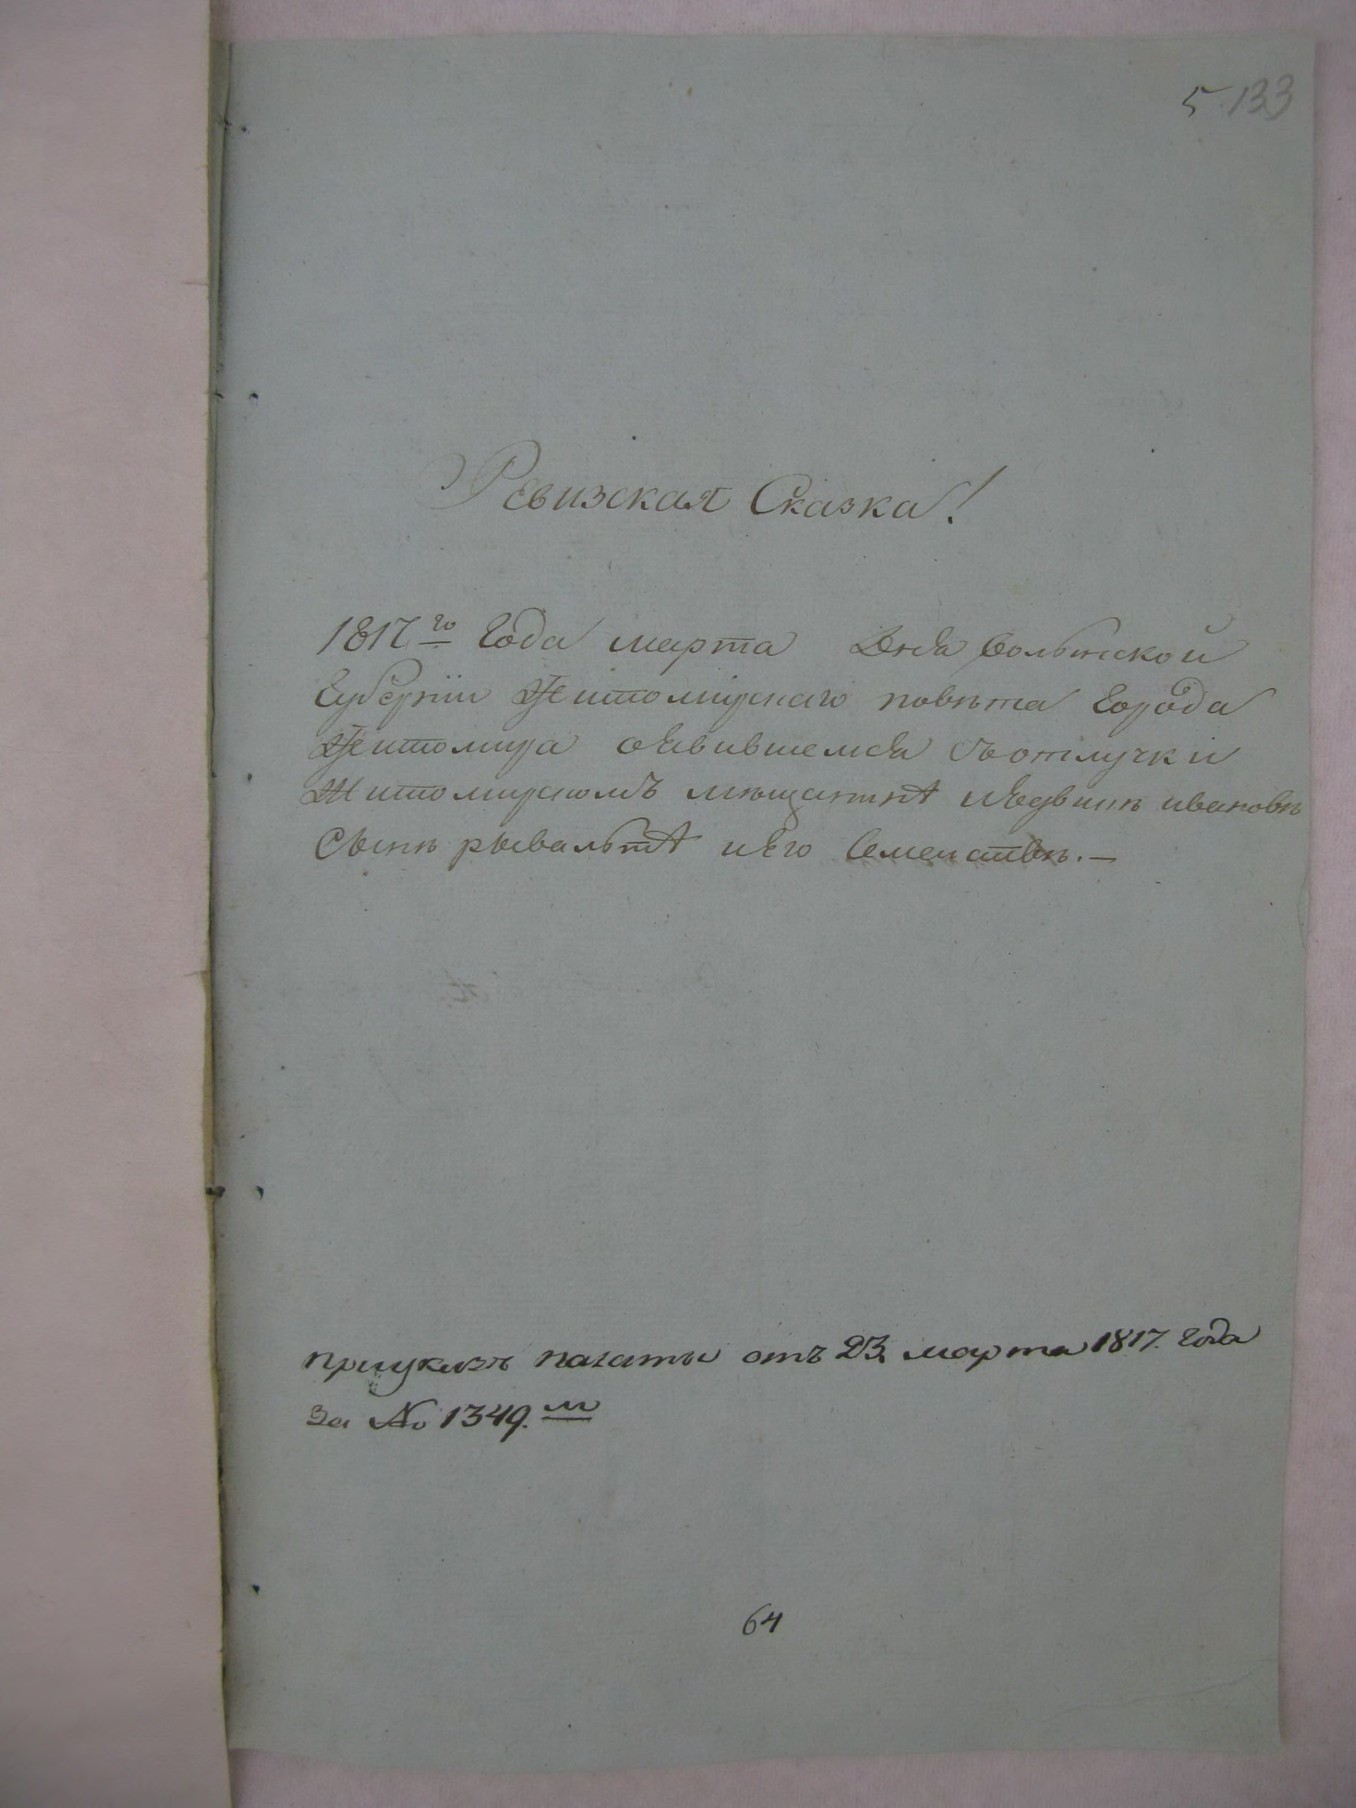 5 133
Ревизская Сказка!
1817го Года марта Дня волынской
Губернїи Житомирскаго повѣта Города
Житомира оявившемся съотлучки
Житомирскомъ мѣщанинѣ Ивановѣ
Сынѣ рывальтѣ иѣго Семействѣ.—
приуказѣ палаты отъ 23. марта 1817. Года
За № 1349.м
64